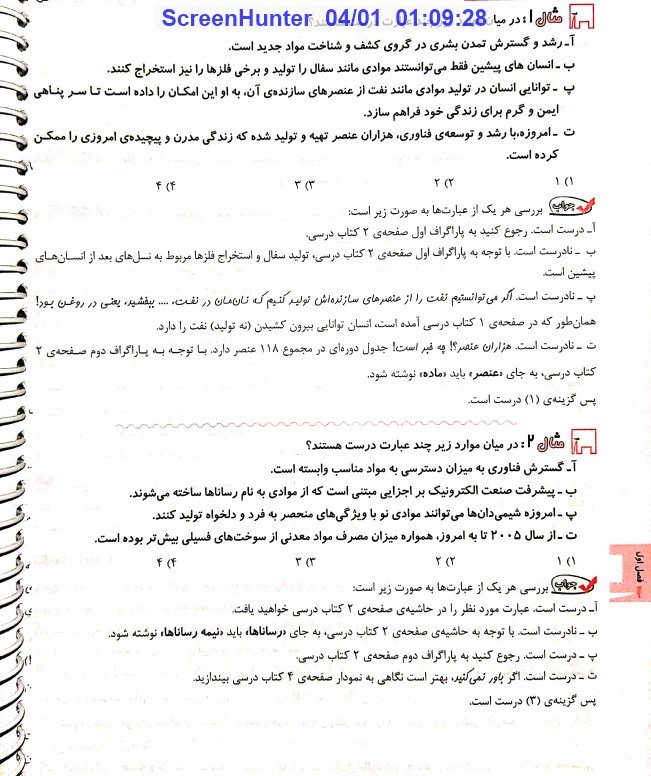 ScreenHunter 04/01 01:09:28
مثال ۱: در میان
آـ رشد و گسترش تمدن بشری در گروی کشف و شناخت مواد جدید است.
ب ـ انسان های پیشین فقط می‌توانستند موادی مانند سفال را تولید و برخی فلزها را نیز استخراج کنند.
پ ـ توانایی انسان در تولید موادی مانند نفت از عنصرهای سازنده‌ی آن، به او این امکان را داده است تا سر پناهی
ایمن و گرم برای زندگی خود فراهم سازد.
ت ـ امروزه،با رشد و توسعه‌ی فناوری، هزاران عنصر تهیه و تولید شده که زندگی مدرن و پیچیده‌ی امروزی را ممکن
کرده است.
۱) ۱ ۲) ۲ ۳) ۳ ۴) ۴
جواب بررسی هر یک از عبارت‌ها به صورت زیر است:
آـ درست است. رجوع کنید به پاراگراف اول صفحه‌ی ۲ کتاب درسی.
ب ـ نادرست است. با توجه به پاراگراف اول صفحه‌ی ۲ کتاب درسی، تولید سفال و استخراج فلزها مربوط به نسل‌های بعد از انسان‌های
پیشین است.
پ ـ نادرست است. اگر می‌توانستیم نفت را از عنصرهای سازنده‌اش تولید کنیم که نان‌مان در نفت، .... ببخشید، یعنی در روغن بود!
همان‌طور که در صفحه‌ی ۱ کتاب درسی آمده است، انسان توانایی بیرون کشیدن (نه تولید) نفت را دارد.
ت ـ نادرست است. هزاران عنصر؟! چه خبر است! جدول دوره‌ای در مجموع ۱۱۸ عنصر دارد. با توجه به پاراگراف دوم صفحه‌ی ۲
کتاب درسی، به جای «عنصر» باید «ماده» نوشته شود.
پس گزینه‌ی (۱) درست است.
مثال ۲: در میان موارد زیر چند عبارت درست هستند؟
آـ گسترش فناوری به میزان دسترسی به مواد مناسب وابسته است.
ب ـ پیشرفت صنعت الکترونیک بر اجزایی مبتنی است که از موادی به نام رساناها ساخته می‌شوند.
پ ـ امروزه شیمی‌دان‌ها می‌توانند موادی نو با ویژگی‌های منحصر به فرد و دلخواه تولید کنند.
ت ـ از سال ۲۰۰۵ تا به امروز، همواره میزان مصرف مواد معدنی از سوخت‌های فسیلی بیش‌تر بوده است.
۱) ۱ ۲) ۲ ۳) ۳ ۴) ۴
جواب بررسی هر یک از عبارت‌ها به صورت زیر است:
آـ درست است. عبارت مورد نظر را در حاشیه‌ی صفحه‌ی ۲ کتاب درسی خواهید یافت.
ب ـ نادرست است. با توجه به حاشیه‌ی صفحه‌ی ۲ کتاب درسی، به جای «رساناها» باید «نیمه رساناها» نوشته شود.
پ ـ درست است. رجوع کنید به پاراگراف دوم صفحه‌ی ۲ کتاب درسی.
ت ـ درست است. اگر باور نمی‌کنید، بهتر است نگاهی به نمودار صفحه‌ی ۴ کتاب درسی بیندازید.
پس گزینه‌ی (۳) درست است.
فصل اول